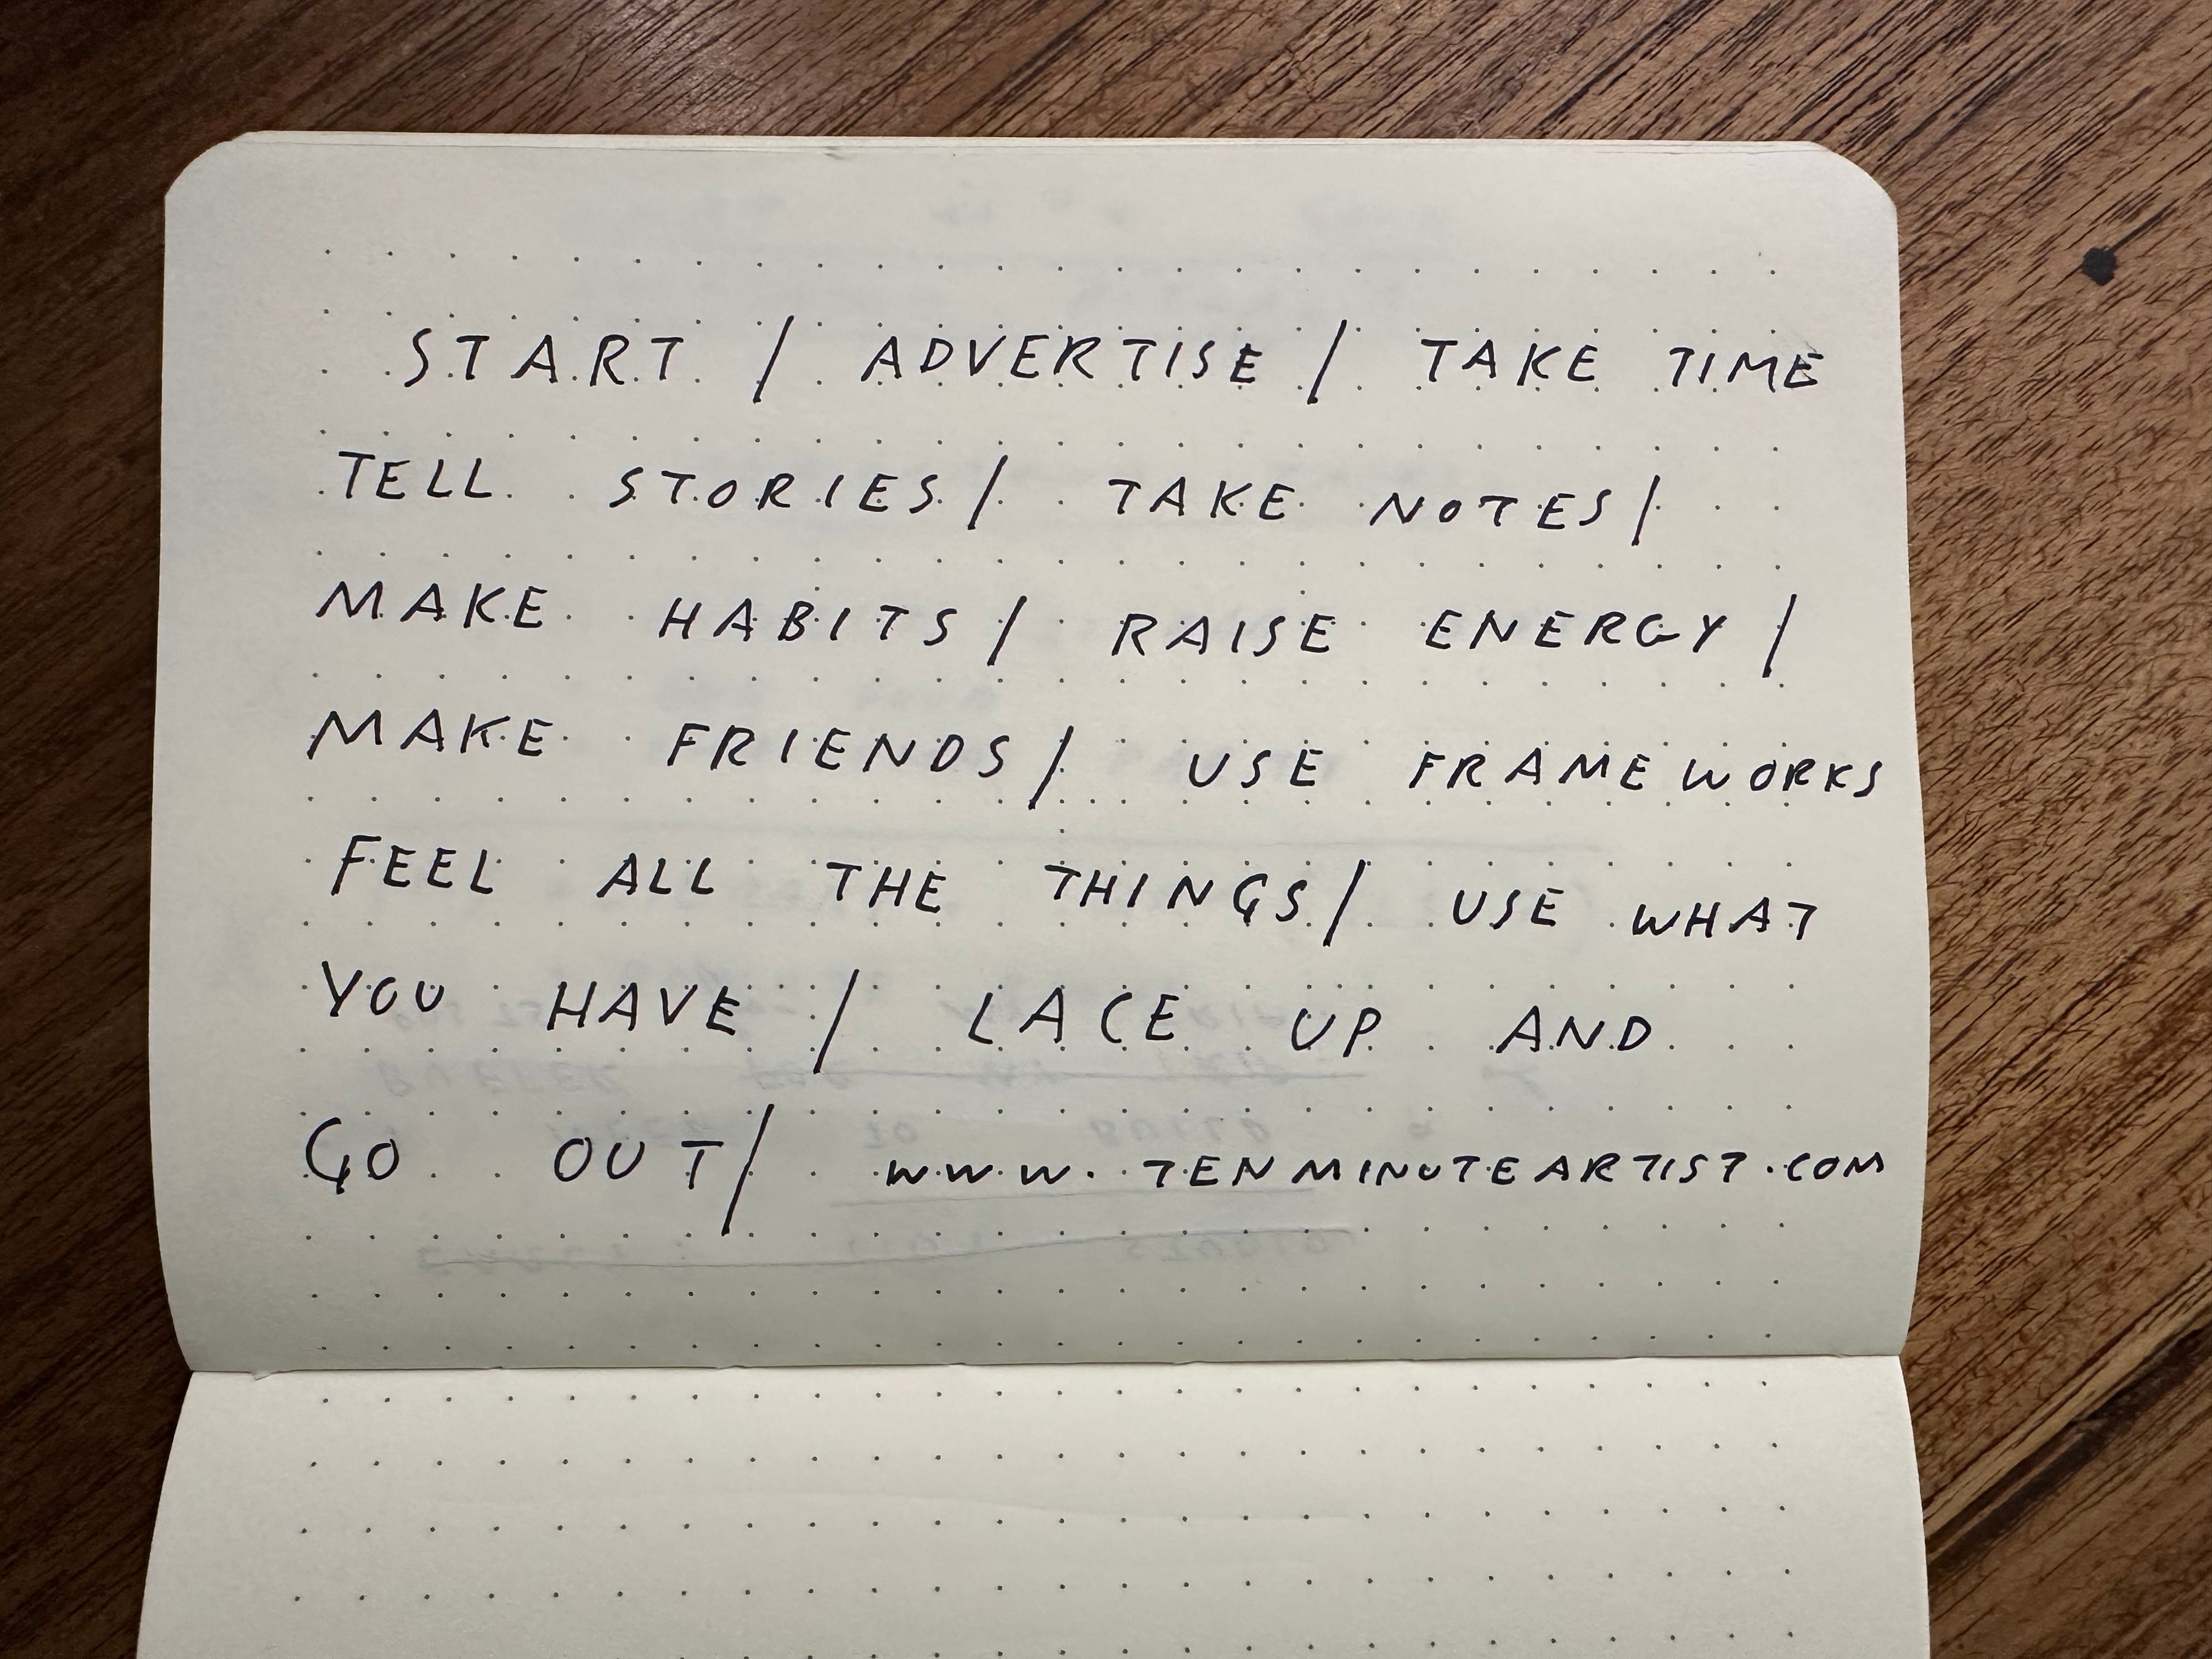 START / ADVERTISE / TAKE TIME
TELL STORIES / TAKE NOTES /
MAKE HABITS / RAISE ENERGY /
MAKE FRIENDS / USE FRAMEWORKS
FEEL ALL THE THINGS / USE WHAT
YOU HAVE / LACE UP AND
GO OUT / www.TENMINUTEARTIST.COM